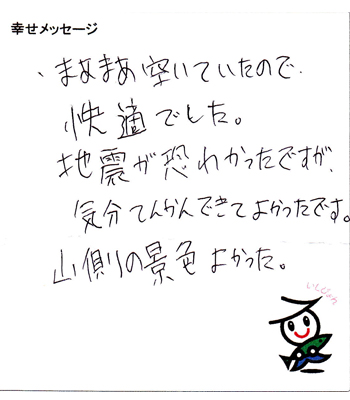 幸せメッセージ
、まあまあ空いていたので、
快適でした。
地震が恐れかったですが、
気分てんかんできてよかったです。
山側の景色よかった。